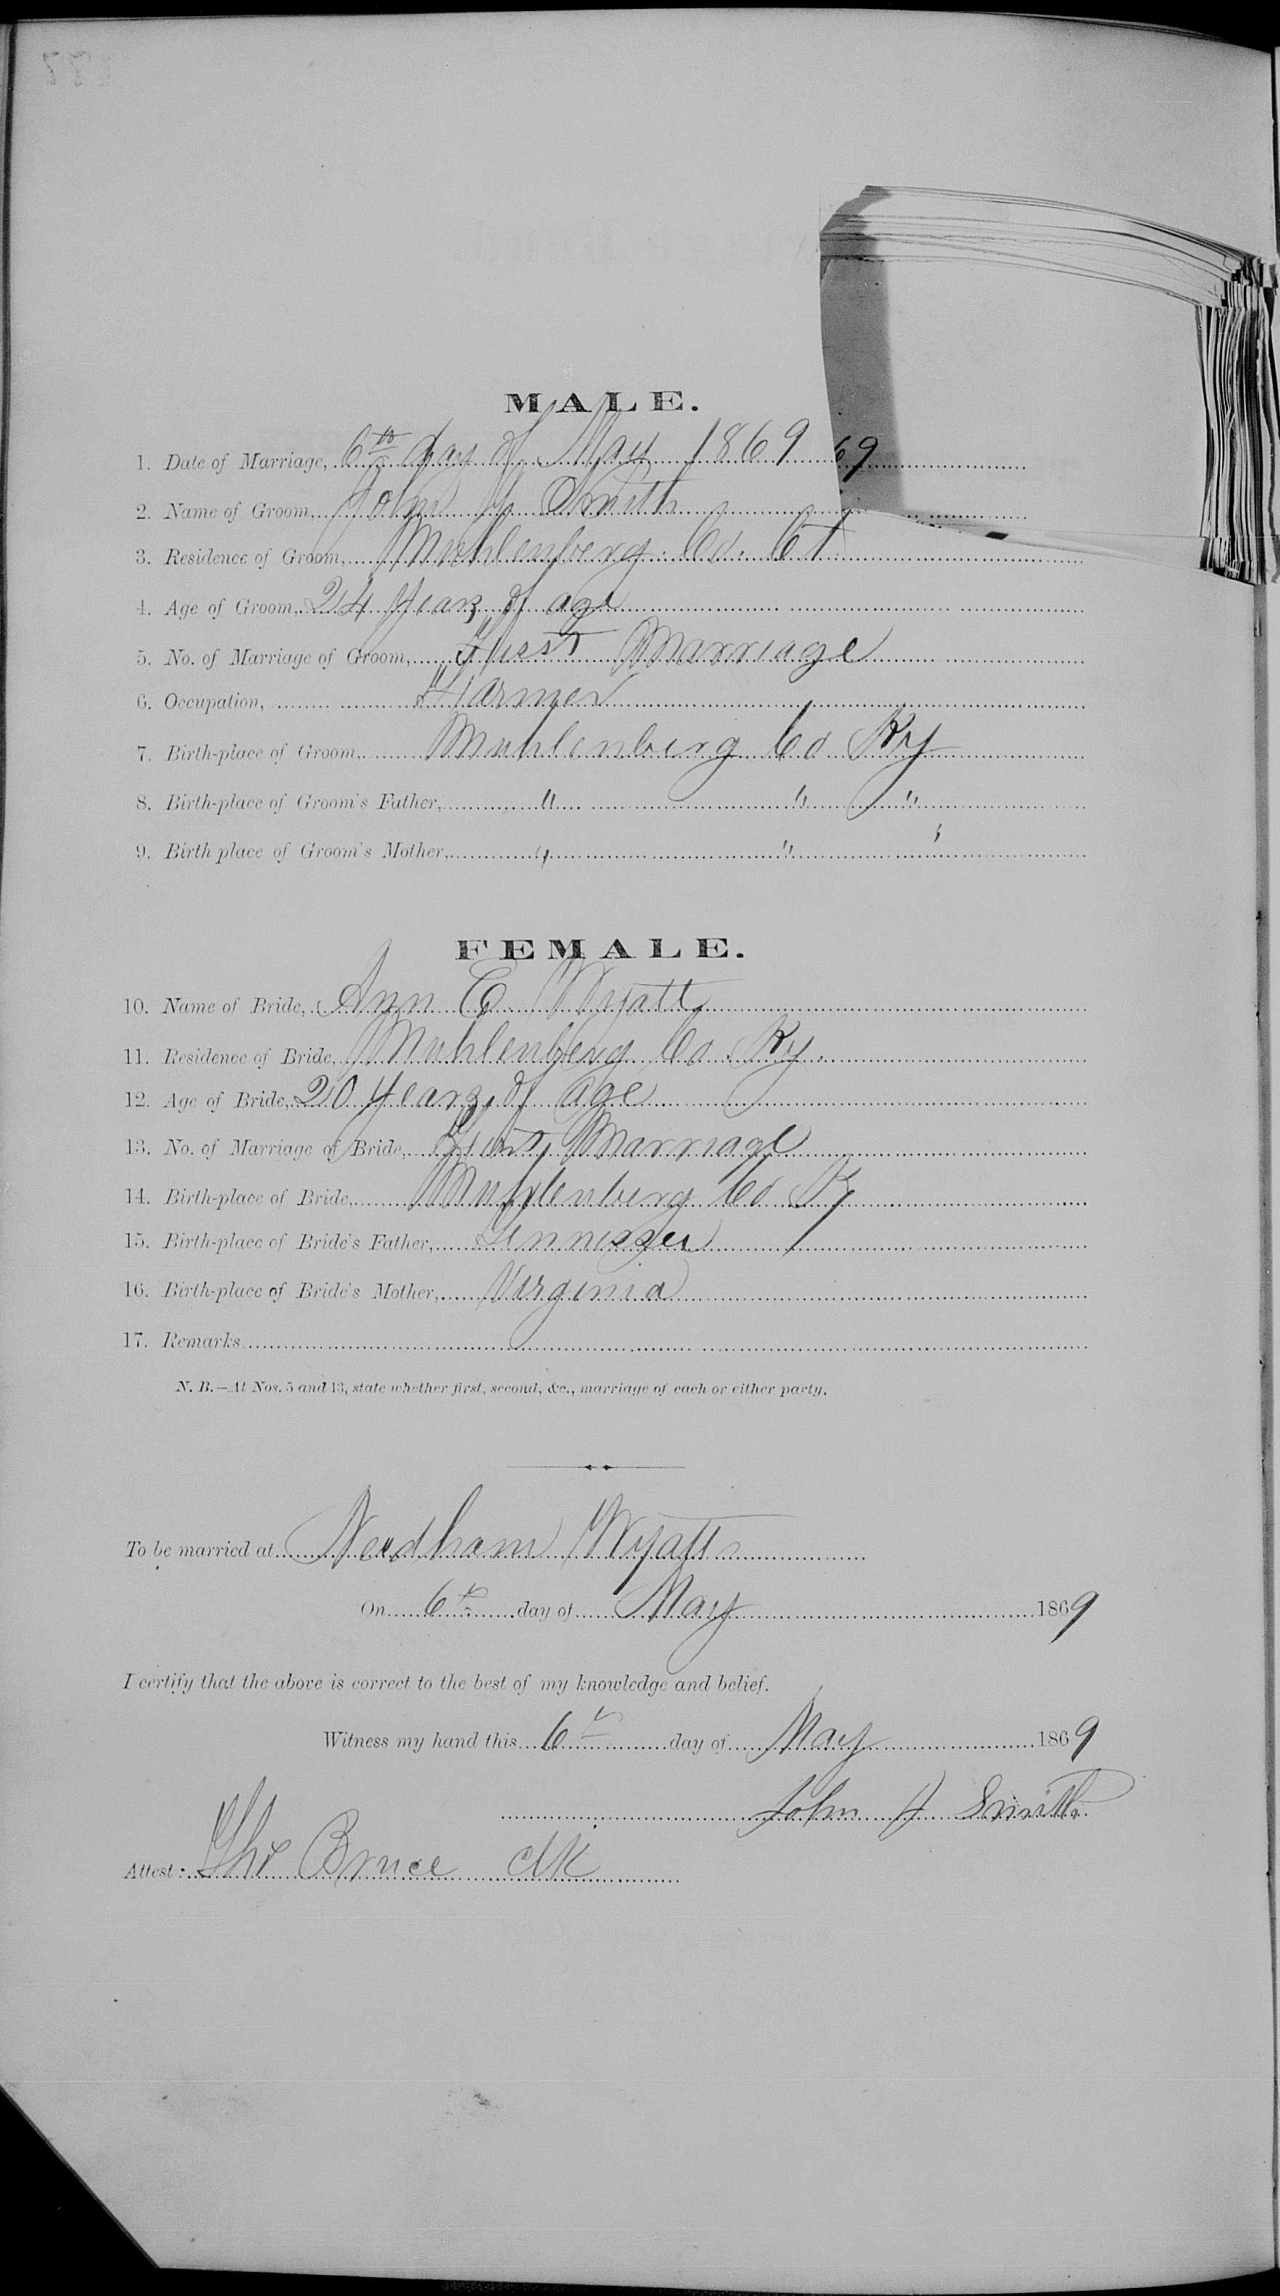 MALE.
1. Date of Marriage, 6th day of May 1869 69
2. Name of Groom, John Smith
3. Residence of Groom, Muhlenberg Co.
4. Age of Groom, 24 years of age
5. No. of Marriage of Groom, First Marriage
6. Occupation, Farmer
7. Birth-place of Groom, Muhlenberg Co Ky
8. Birth-place of Groom's Father, " " "
9. Birth place of Groom's Mother, " " "
FEMALE.
10. Name of Bride, Ann E. Wyatt
11. Residence of Bride, Muhlenberg Co. Ky.
12. Age of Bride, 20 years of age
13. No. of Marriage of Bride, First Marriage
14. Birth-place of Bride, Muhlenberg Co Ky
15. Birth-place of Bride's Father, Tennessee
16. Birth-place of Bride's Mother, Virginia
17. Remarks
N. B.—At Nos. 5 and 13, state whether first, second, &c., marriage of each or either party.
To be married at Needham Wyatts
On 6th day of May 1869
I certify that the above is correct to the best of my knowledge and belief.
Witness my hand this 6th day of May 1869
John Smith
Attest: Tho Bruce clk